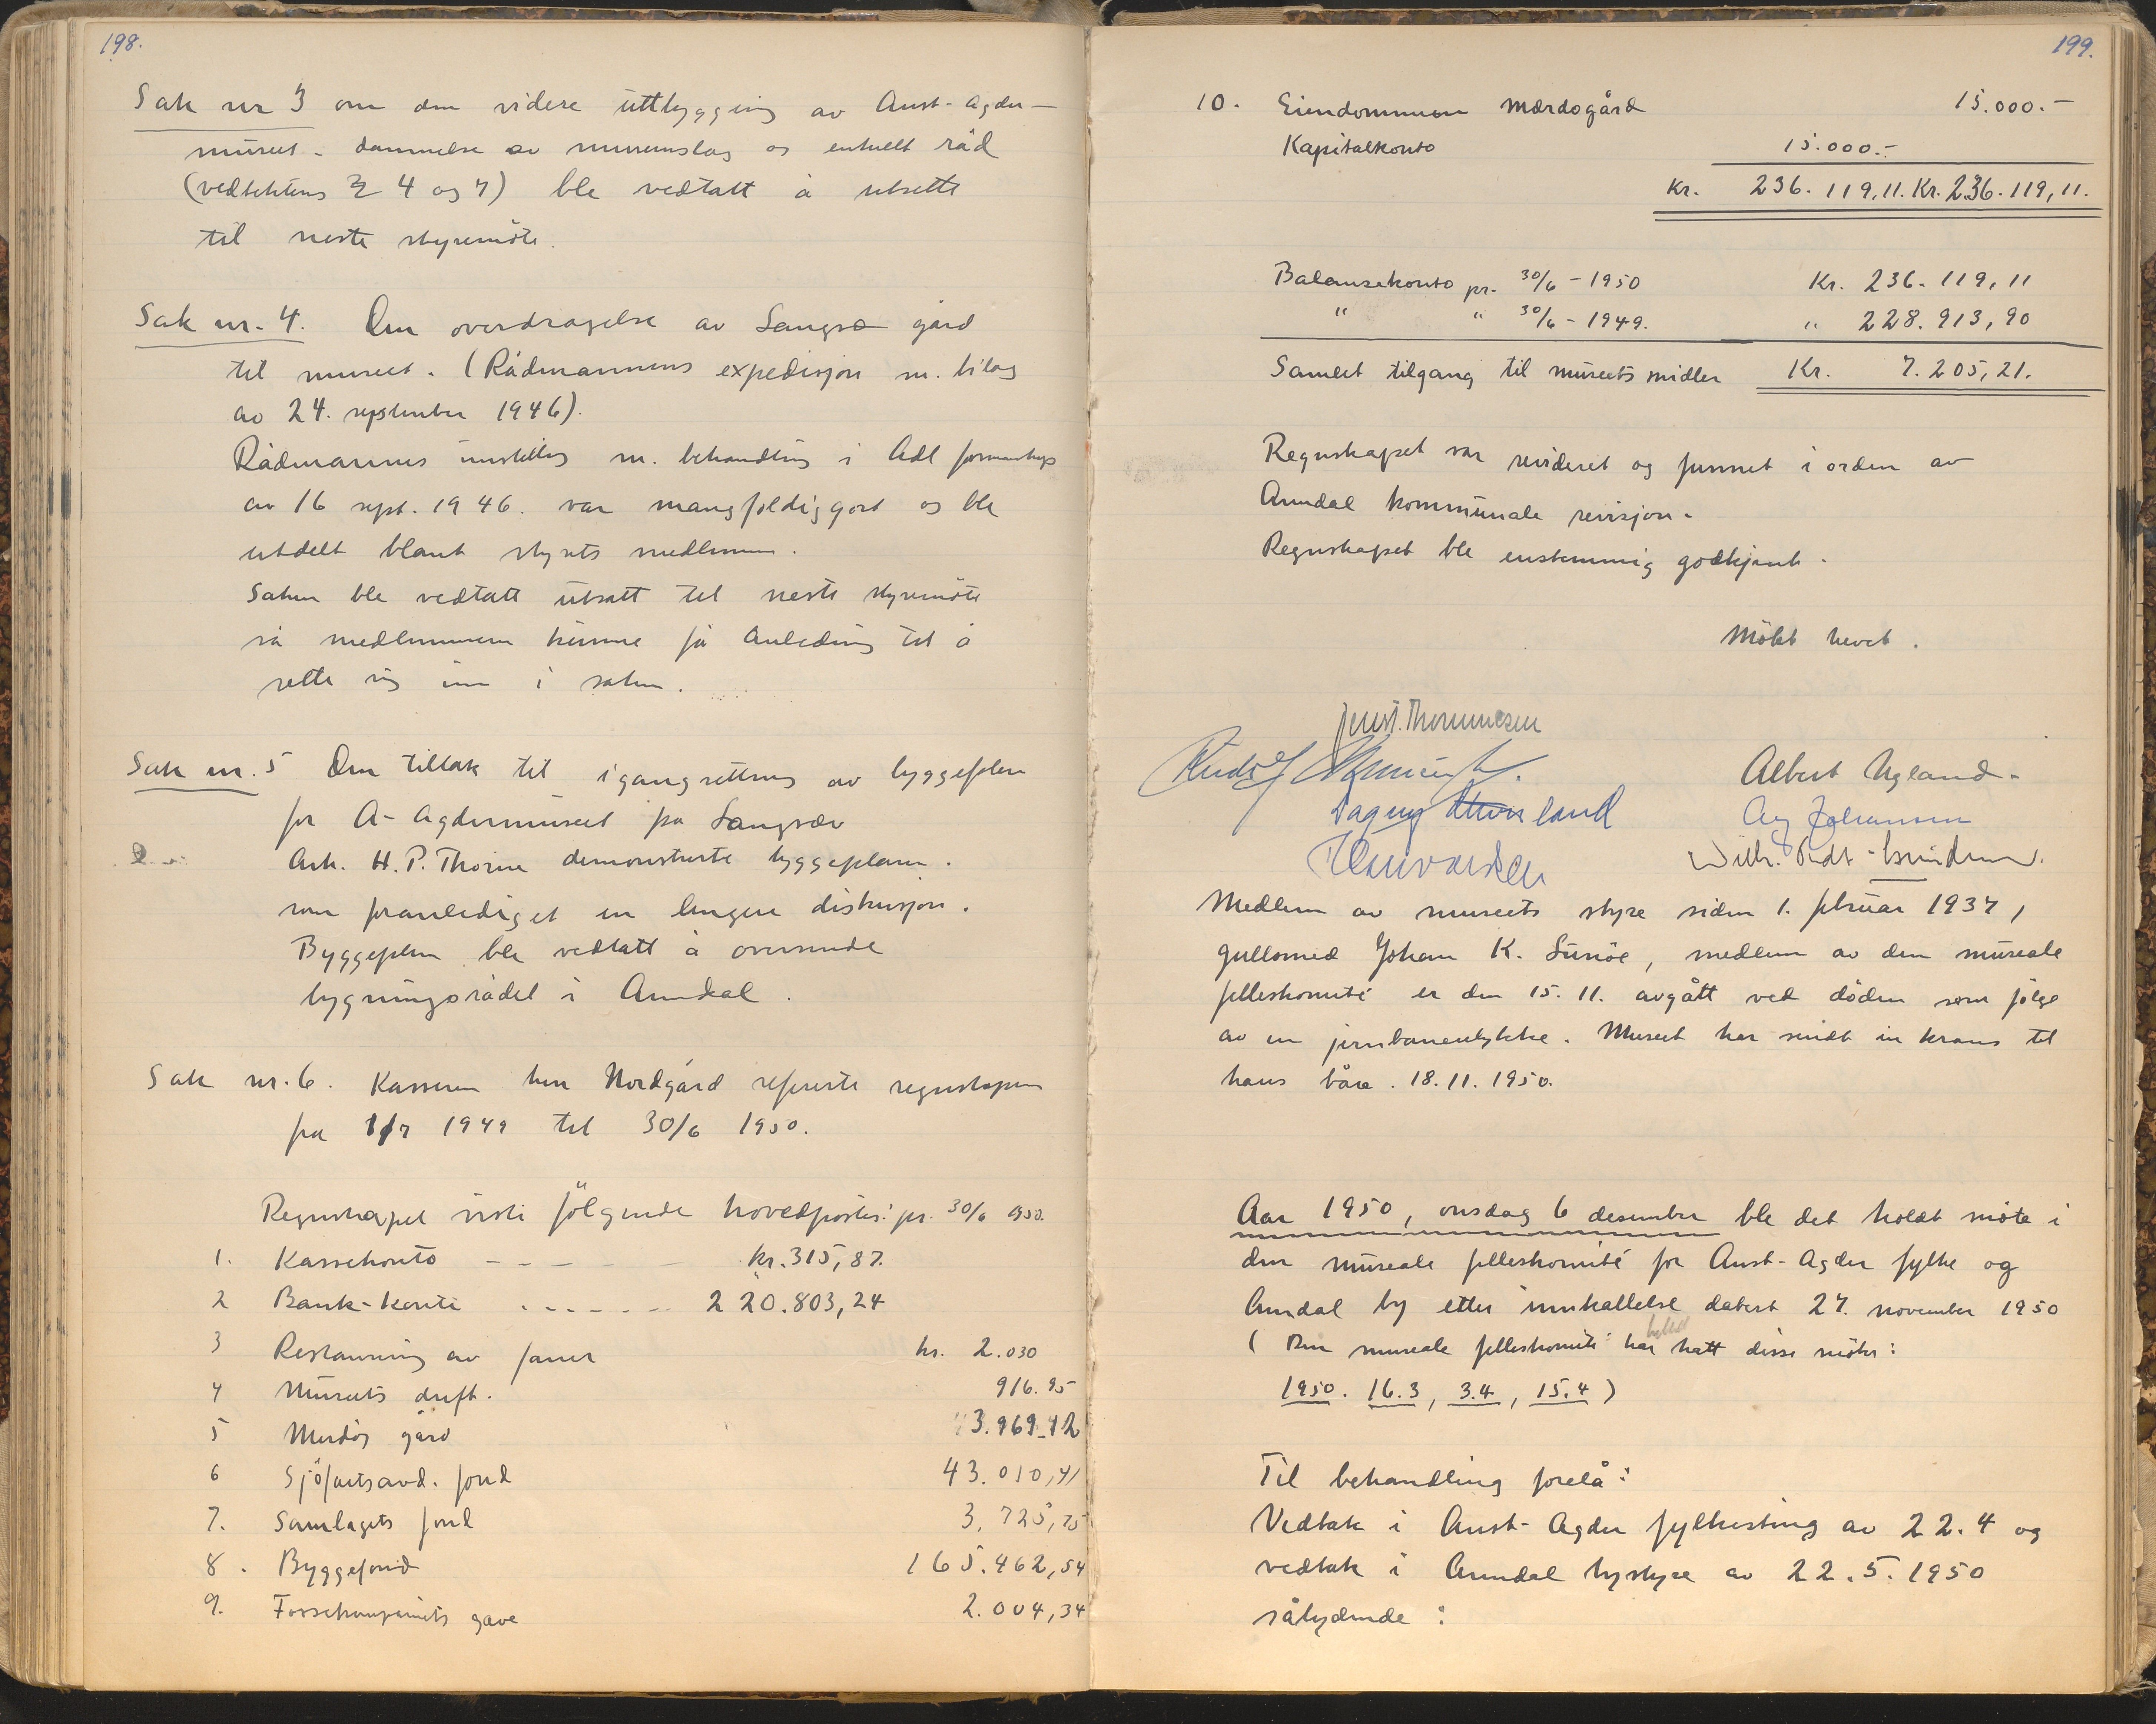 198.
Sak nr 3 om den videre utbygging av Aust-Agder-
museet - dannelse av museumslag og eventuelt råd
(vedtektens § 4 og 7) ble vedtatt å utsette
til neste styremöte.
Sak nr. 4. Om overdragelse av Langsæ gård
til museet. (Rådmannens expedisjon m. bilag
av 24. september 1946).
Rådmannens innstilling m. behandling i Adl formannskap
av 16 sept. 1946. var mangfoldiggort og ble
utdelt blant styrets medlemmer.
Saken ble vedtatt utsatt til neste styremöte
så medlemmene kunne få anledning til å
sette sig inn i saken.
Sak nr. 5 Om tiltak til igangsetting av byggeplan
for A-Agdermuseet på Langsæ
Ark. H. P. Thorne demonstrerte byggeplanen.
som foranlediget en lengere diskusjon.
Byggeplan ble vedtatt å oversende
bygningsrådet i Arendal.
Sak nr. 6. Kasseren herr Nordgård refererte regnskapen
fra 1/7 1949 til 30/6 1950.
Regnskapet viste fölgende hovedposter: pr. 30/6 950.
1. Kassekonto - - - - kr. 315,87.
2 Bank-konti . - - - - 220.803,24
3 Restaurering av faner kr. 2.030
4 Museets drift. 916.95
5 Merdög gård 3.969.12
6 Sjöfartsavd. fond 43.010,41
7. Samlagets fond 3.725,75
8. Byggefond 165.462,54
9. Fossekompaniets gave 2.004,34
199.
10. Eiendommen Mærdogård 15.000.-
Kapitalkonto 15.000.-
Kr. 236.119,11. Kr. 236.119,11.
Balansekonto pr. 30/6 - 1950 Kr. 236.119,11
" " 30/6 - 1949. " 228.913,90
Samlet tilgang til museets midler Kr. 7.205,21.
Regnskapet var revideret og funnet i orden av
Arendal kommunale revisjon.
Regnskapet ble enstemmig godkjent.
Mötet hevet.
Thommesen
Rudolf Albert Ugland.
Dagny land Aug Johansen
Wilh.
Medlem av museets styre siden 1. februar 1937,
gullsmed Johan K. Sunöe, medlem av den museale
felleskomité er den 15. 11. avgått ved döden som fölge
av en jernbaneulykke. Museet har sendt en krans til
hans båre. 18. 11. 1950.
Aar 1950, onsdag 6 desember ble det holdt möte i
den museale felleskomité for Aust-Agder fylke og
Arendal by etter innkallelse datert 27. november 1950
( Den museale felleskomité har hatt disse möter:
1950. 16.3, 3.4, 15.4 )
Til behandling forelå:
Vedtak i Aust-Agder fylkesting av 22.4 og
vedtak i Arendal bystyre av 22.5.1950
sålydende: